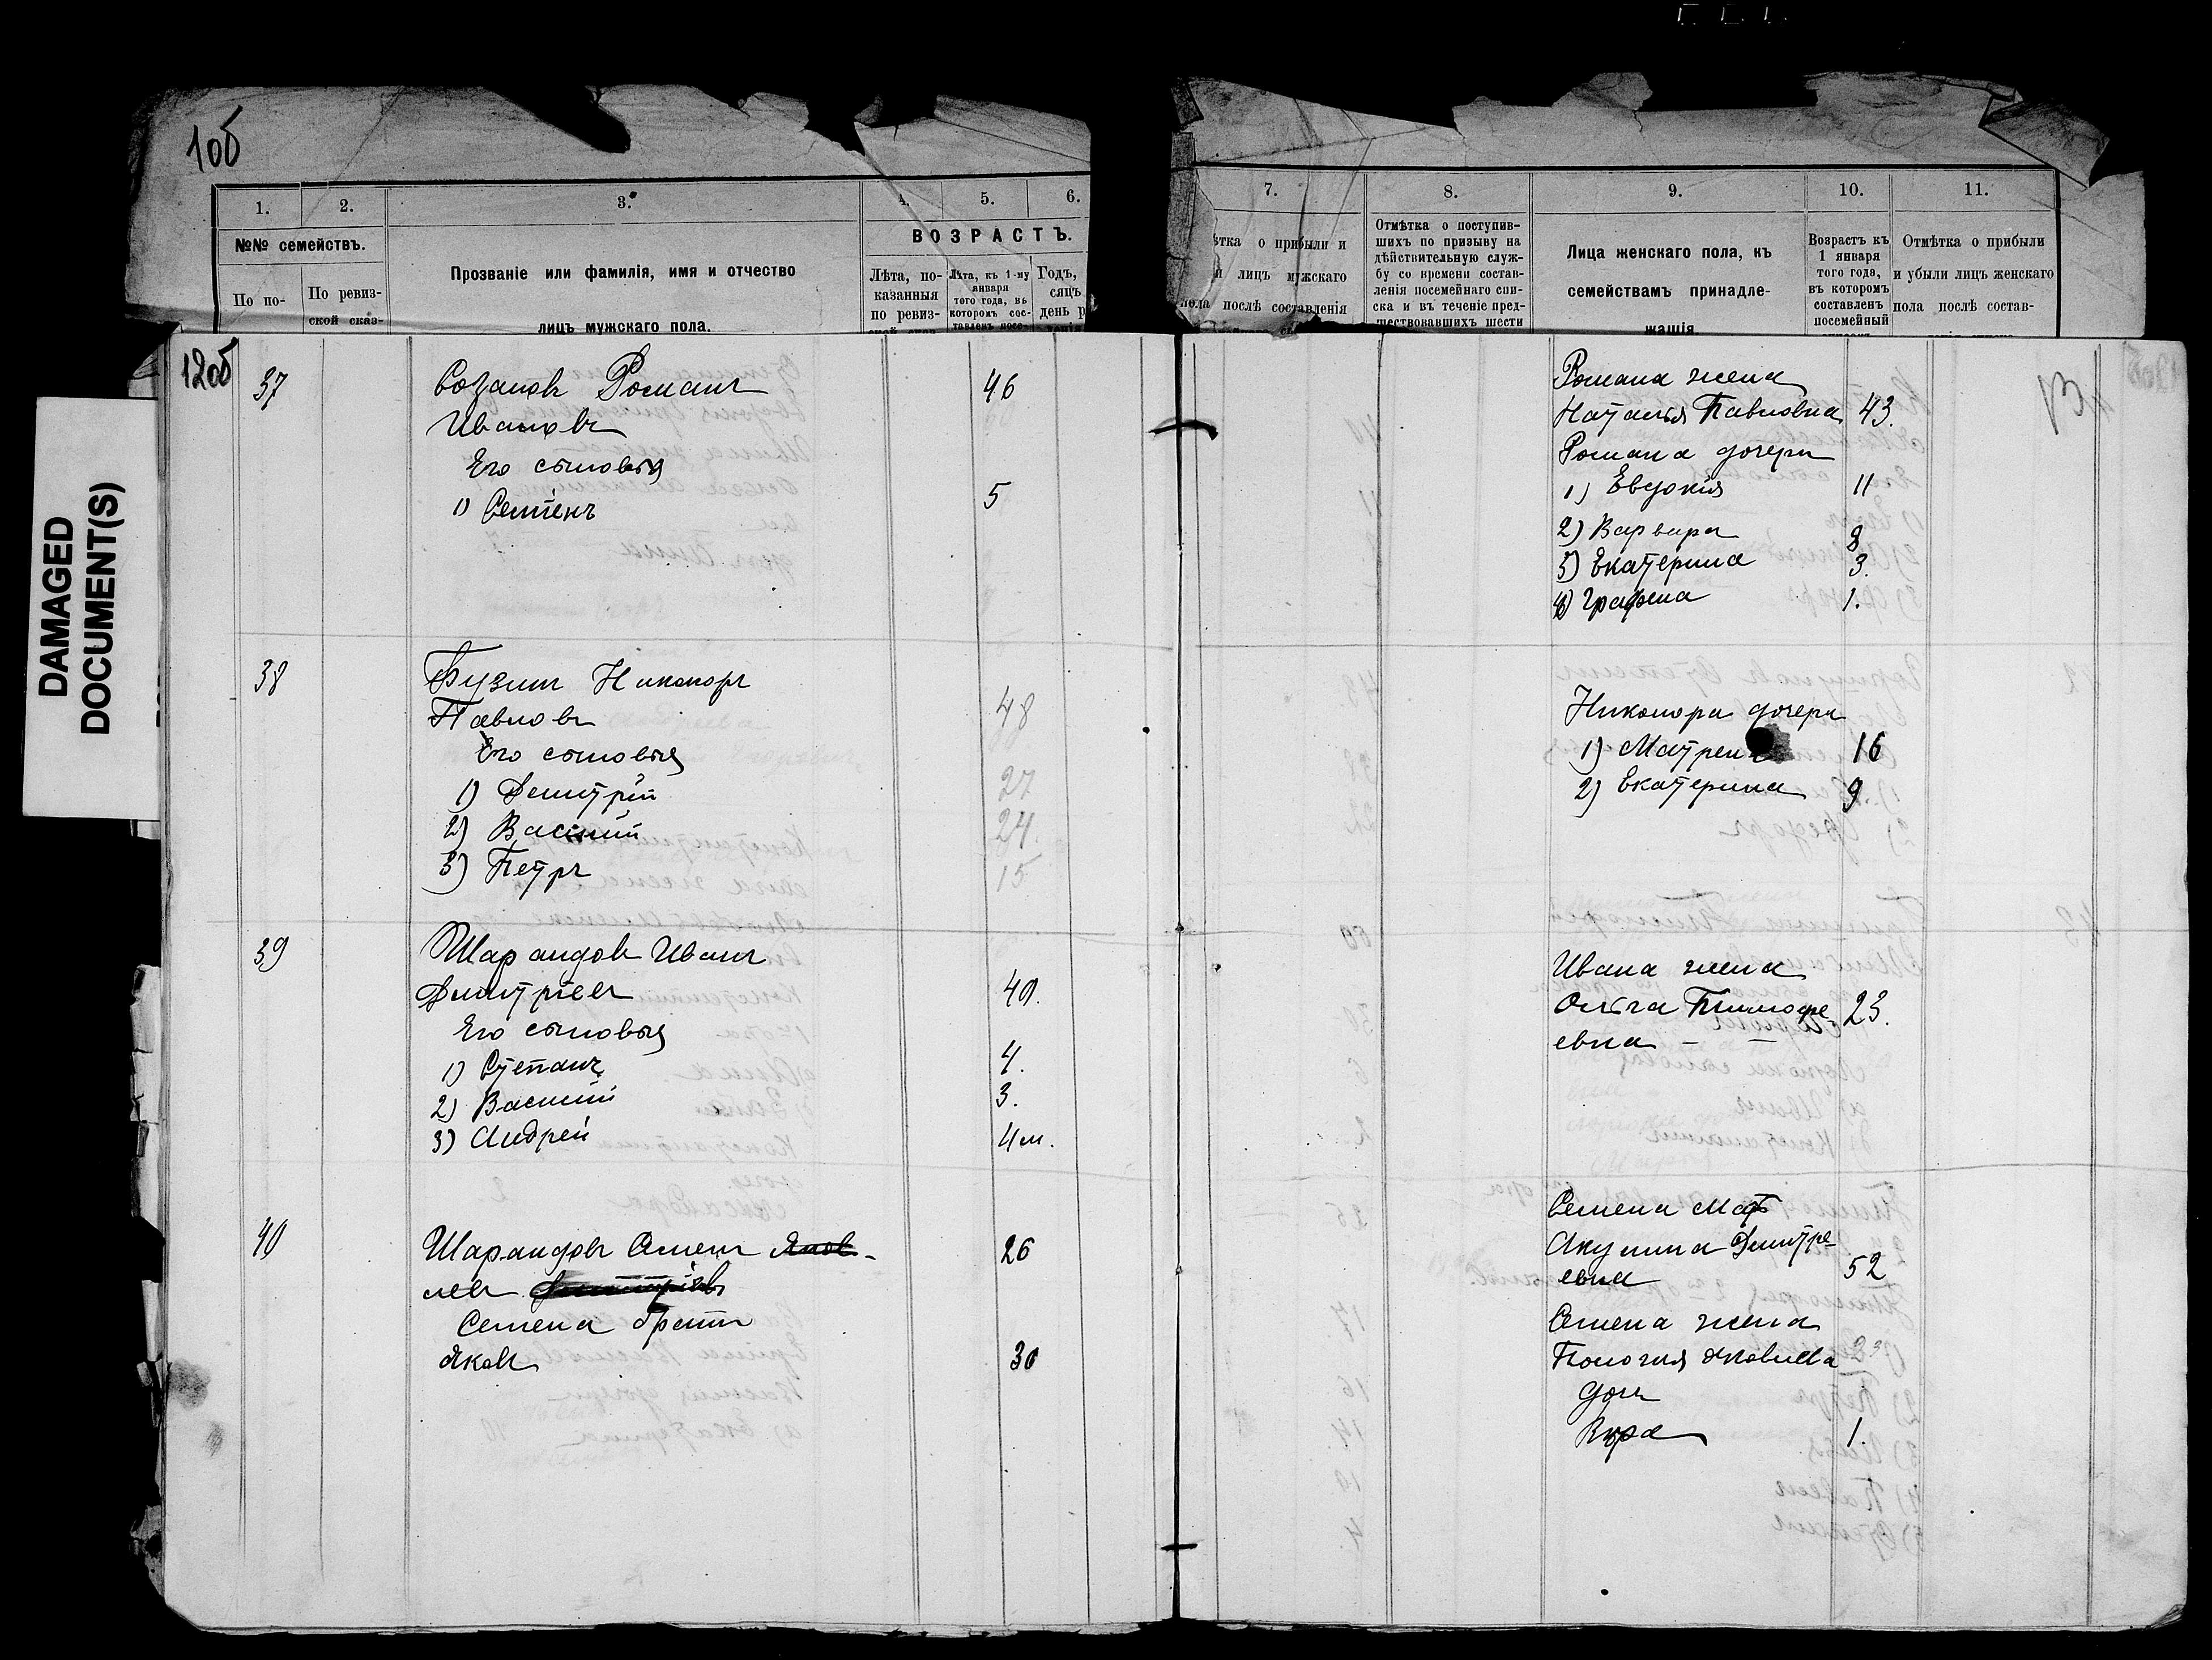 10б
1.
2.
3.
4.
5.
6.
№№ семействъ.
Прозваніе или фамилія, имя и отчество
лицъ мужскаго пола.
ВОЗРАСТЪ.
По по-
По ревиз-
ской сказ-
Лѣта, по-
казанныя
по ревиз-
Лѣта, къ 1-му
января
того года, въ
которомъ сос-
тавленъ посе-
Годъ,
сяцъ
день р
7.
8.
9.
10.
11.
ѣтка о прибыли и
и лицъ мужскаго
пола послѣ составленія
Отмѣтка о поступив-
шихъ по призыву на
дѣйствительную служ-
бу со времени состав-
ленія посемейнаго спи-
ска и въ теченіе пред-
шествовавшихъ шести
Лица женскаго пола, къ
семействамъ принадле-
жащія
Возрастъ къ
1 января
того года,
въ которомъ
составленъ
посемейный
Отмѣтка о прибыли
и убыли лицъ женскаго
пола послѣ состав-
DAMAGED
DOCUMENT(S)
12об
37
Созановъ Романъ 46
Ивановъ
Его сыновья
1) Семенъ 5
38
Бузинъ Никоноръ
Павловъ 48
Его сыновья
1) Дмитрій 27
2) Василій 24.
3) Петръ 15
39
Шарандовъ Иванъ
Дмитріевъ 40.
Его сыновья
1) Степанъ 4.
2) Василій 3.
3) Андрей 4 м.
40
Шарандовъ Семенъ Яков- 26
левъ Дмитріевъ
Семена братъ
Яковъ 30
13
Романа жена
Наталья Павловна 43.
Романа дочери
1) Евдокія 11
2) Варвара 8
3) Екатерина 3.
4) Графена 1.
Никонора дочери
1) Матрен 16
2) Екатерина 9
Ивана жена
Ольга Тимофе- 23.
евна
Семена мать
Акулина Дмитре-
евна 52
Семена жена
Пология Яковлева
дочь
Вѣра 1.